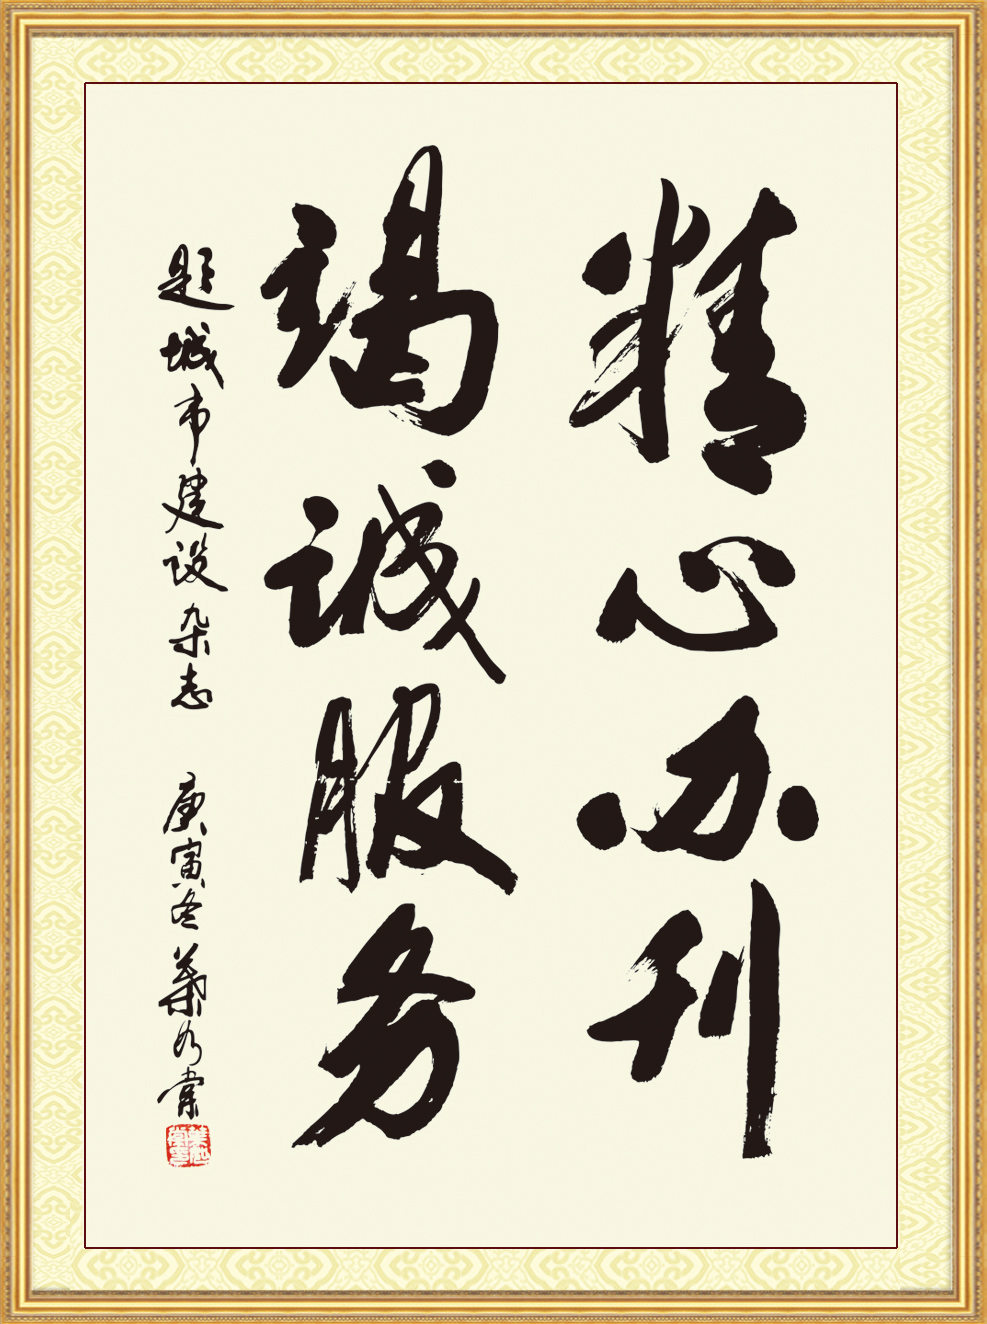 精心办刊
竭诚服务
题城市建设杂志 庚寅冬 葉如棠